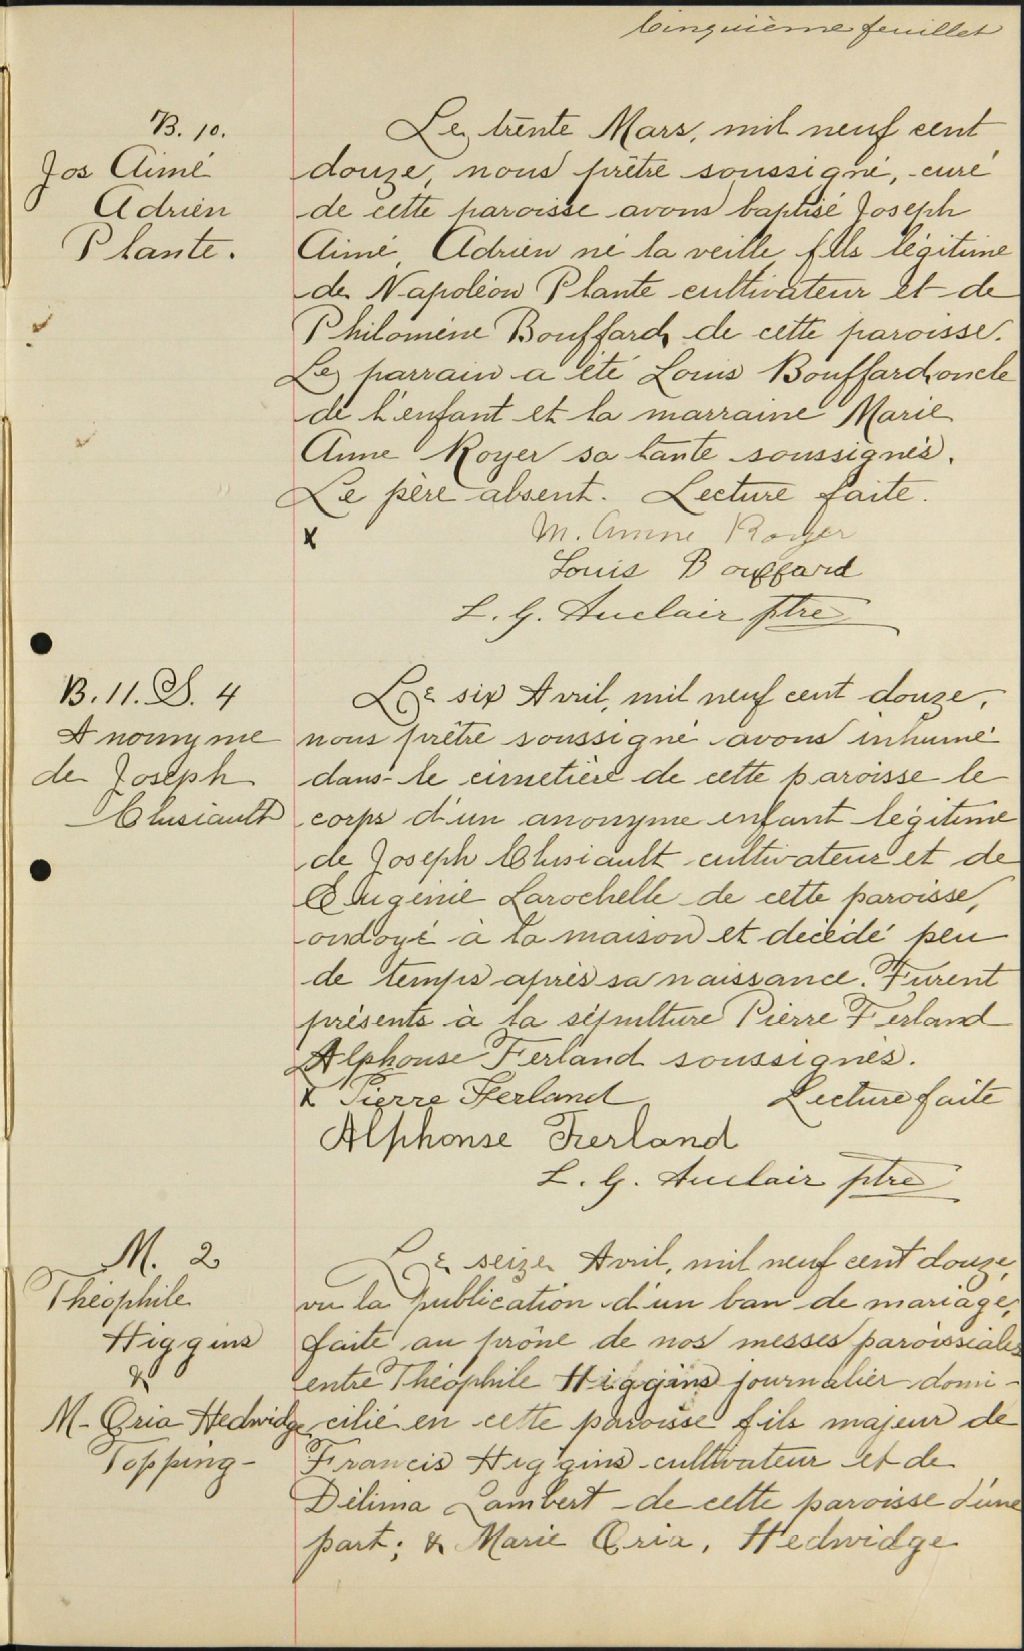 Cinquième feuillet
B. 10.
Jos Aimé
Adrien
Plante.
Le trente Mars, mil neuf cent
douze, nous prêtre soussigné, curé
de cette paroisse avons baptisé Joseph
Aimé, Adrien né la veille, fils légitime
de Napoléon Plante cultivateur et de
Philomène Bouffard, de cette paroisse.
Le parrain a été Louis Bouffard, oncle
de l'enfant et la marraine Marie
Anne Royer sa tante soussignés.
Le père absent. Lecture faite.
x M. Anne Royer
Louis Bouffard
L. G. Auclair ptre
B. 11. S. 4
Anonyme
de Joseph
Clusiault
Le six Avril, mil neuf cent douze,
nous prêtre soussigné avons inhumé
dans le cimetière de cette paroisse le
corps d'un anonyme enfant légitime
de Joseph Clusiault cultivateur et de
Eugénie Larochelle de cette paroisse,
ondoyé à la maison et décédé peu
de temps après sa naissance. Furent
présents à la sépulture Pierre Ferland
Alphonse Ferland soussignés.
x Pierre Ferland Lecture faite
Alphonse Ferland
L. G. Auclair ptre
M. 2
Théophile
Higgins
&
M- Oria Hedwidge
Topping-
Le seize Avril, mil neuf cent douze,
vu la publication d'un ban de mariage,
faite au prône de nos messes paroissiales
entre Théophile Higgins journalier domi-
cilié en cette paroisse fils majeur de
Francis Higgins cultivateur et de
Délima Lambert de cette paroisse d'une
part; & Marie Oria, Hedwidge